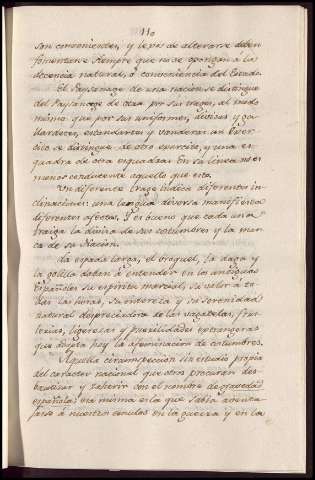 110
son convenientes, y lexos de alterarse deben
fomentarse siempre que no se opongan á la
decencia natural, ó conveniencia del Estado.
El Paysanage de una nacion se distingue
del Paysanage de otra por sus trages, al modo
mismo que por sus uniformes, divisas y ga-
llardetes, estandartes y vanderas un Exer-
cito se distingue de otro exercito, y una es-
quadra de otra esquadra. En su linea no es
menos conducente aquello que esto.
Un diferente trage indica diferentes in-
clinaciones: una lengua diversa manifiesta
diferentes afectos. Y es bueno que cada uno
traiga la divisa de sus costumbres y la mar-
ca de su Nacion.
La espada larga, el broquel, la daga y
la golilla daban á entender en los antiguos
Españoles su espiritu marcial, su valor á to-
das las luces, su entereza y su serenidad
natural despreciadora de las bagatelas, fru-
lerias, ligerezas y puerilidades extrangeras
que adopta hoy la afeminacion de costumbres.
Aquella circunspeccion sin estudio propia
del caracter nacional que otros procuran des-
bautizar y zaherir con el nombre de gravedad
española, era misma era la que sabía
á nuestros emulos en la guerra y en la